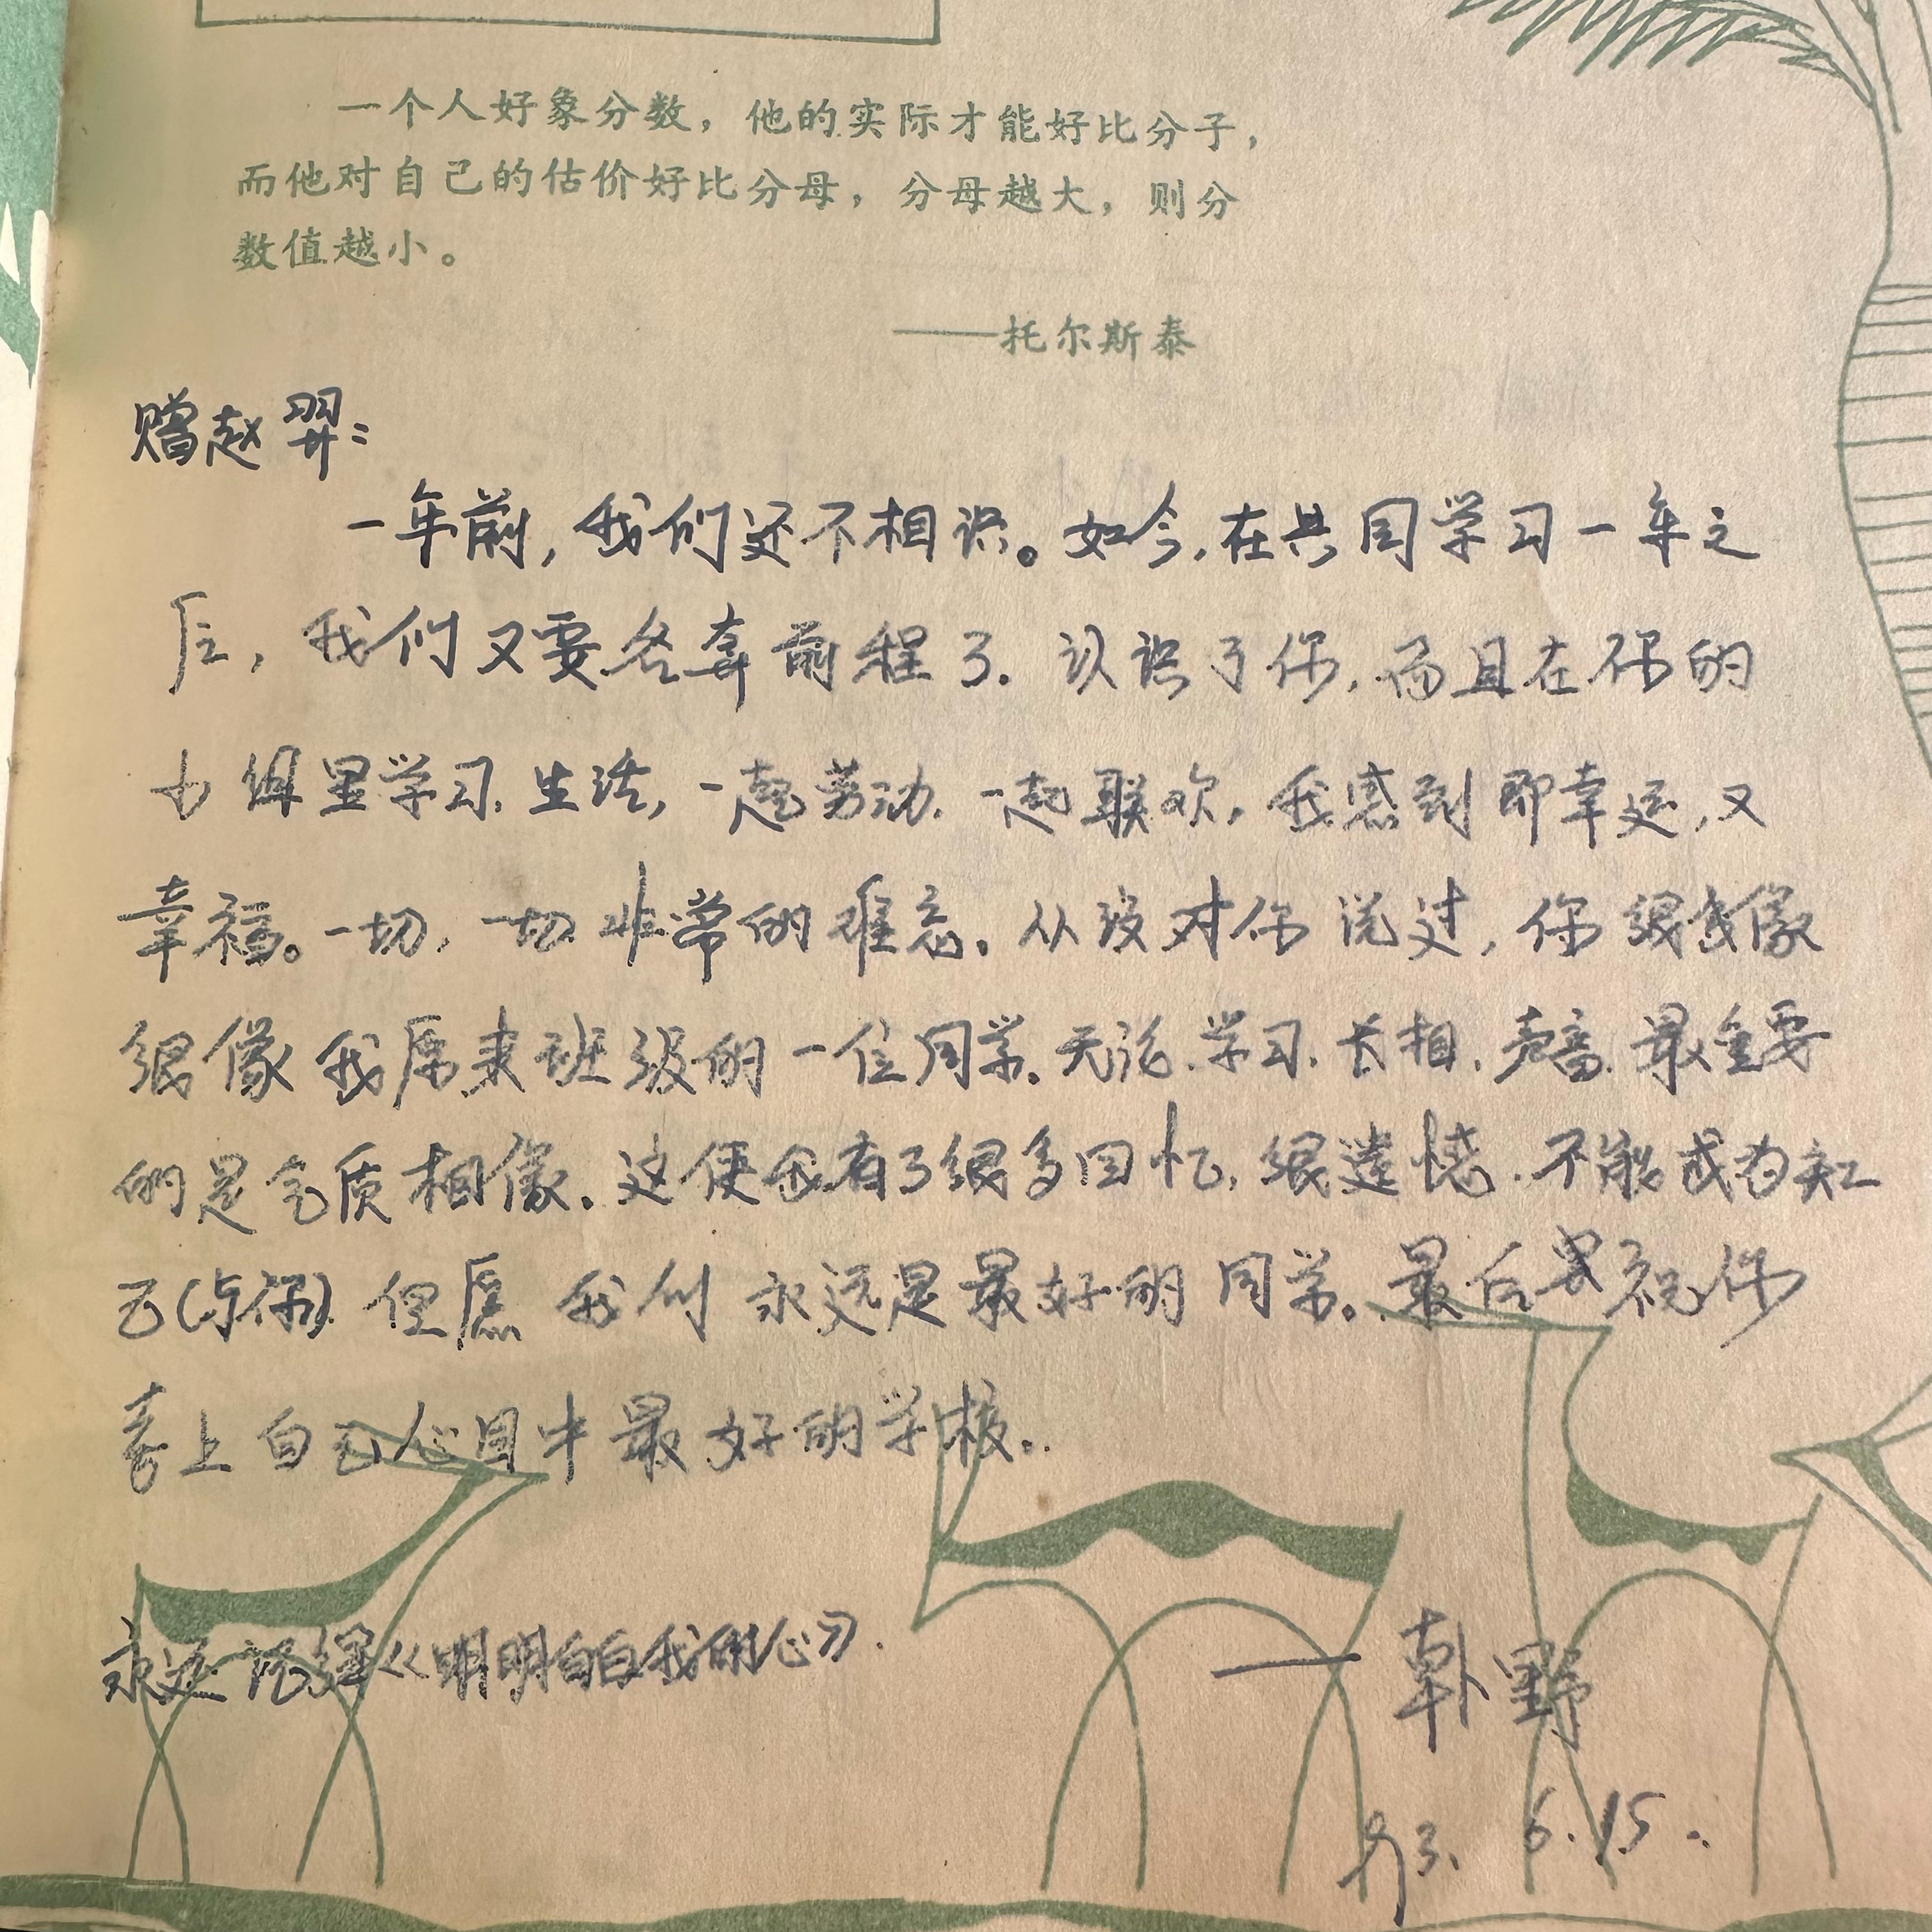 一个人好象分数，他的实际才能好比分子，
而他对自己的估价好比分母，分母越大，则分
数值越小。
——托尔斯泰
赠赵羿：
一年前，我们还不相识。如今，在共同学习一年之
后，我们又要各奔前程了。认识了你，而且在你的
小组里学习、生活，一起劳动，一起联欢，我感到即幸运，又
幸福。一切，一切非常的难忘。从没对你说过，你很像
很像我原来班级的一位同学。无论学习、长相、声音、最重要
的是气质相像。这使我有了很多回忆，很遗憾，不能成为知
己(与你)。但愿我们永远是最好的同学。最后要祝你
考上自己心目中最好的学校。
永远记得《明明白白我的心》.
——野
93. 6. 15.